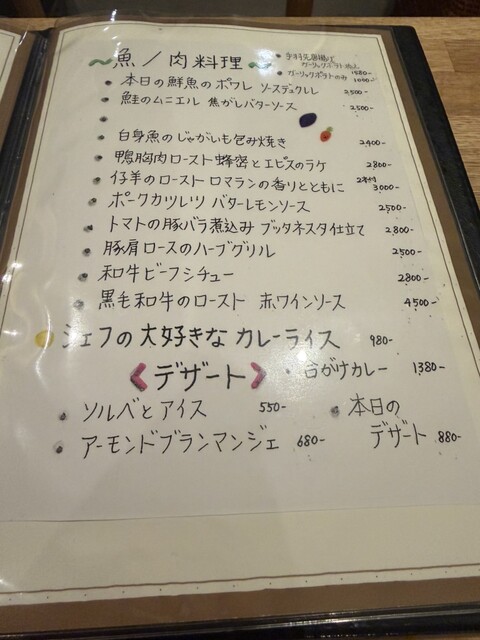 ～魚/肉料理～
・手羽先唐揚げと
ガーリックポテト
1580-
・ガーリックポテトのみ 1000-
・本日の鮮魚のポワレ ソースデュクレレ 2500-
・鮭のムニエル 焦がしバターソース 2500-
・白身魚のじゃがいも包み焼き 2400-
・鴨胸肉ロースト 蜂蜜とエピスのラケ 2800-
・仔羊のロースト ロマランの香りとともに 2本付 3000-
・ポークカツレツ バターレモンソース 2500-
・トマトの豚バラ煮込み プッタネスタ仕立て 2,800-
・豚肩ロースのハーブグリル 2500-
・和牛ビーフシチュー 2800-
・黒毛和牛のロースト ホワインソース 4500-
シェフの大好きな カレーライス 980-
・合がけカレー 1380-
《デザート》
・ソルベとアイス 550-
・本日のデザート 880-
・アーモンドブランマンジェ 680-